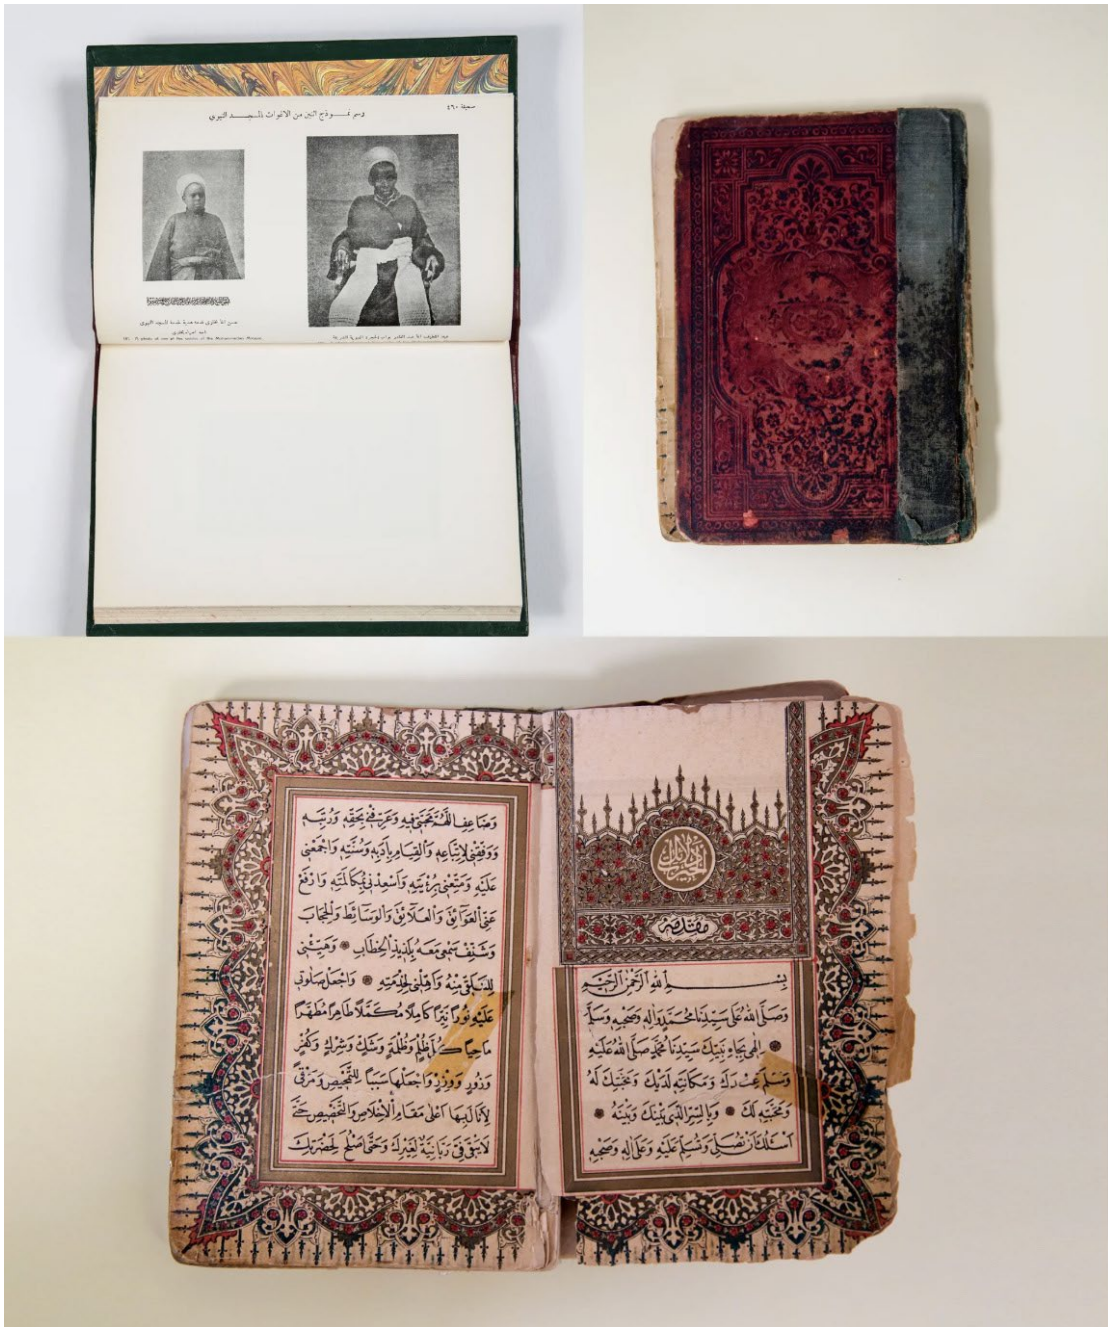 صحيفة ٤٦٠
رسم نموذج اثنين من الاغوات بالمسجد النبوي
عبد اللطيف اغا عبد القادر بواب الحجرة النبوية الشريفة
دلائل الخيرات
مقدمه
بِسْمِ اللهِ الرَّحْمٰنِ الرَّحِيْمِ
وَصَلَّى اللهُ عَلٰى سَيِّدِنَا مُحَمَّدٍ وَاٰلِهِ وَصَحْبِهِ وَسَلَّمَ
اِلٰهِي بِجَاهِ نَبِيِّكَ سَيِّدِنَا مُحَمَّدٍ صَلَّى اللهُ عَلَيْهِ
وَسَلَّمَ عِنْدَكَ وَمَكَانَتِهِ لَدَيْكَ وَمَحَبَّتِكَ لَهُ
وَمَحَبَّتِهِ لَكَ وَبِالسِّرِّ الَّذِي بَيْنَكَ وَبَيْنَهُ
اَسْئَلُكَ اَنْ تُصَلِّيَ وَتُسَلِّمَ عَلَيْهِ وَعَلٰى اٰلِهِ وَصَحْبِهِ
وَضَاعِفِ اللّٰهُمَّ مَحَبَّتِي فِيهِ وَعَرِّفْنِي بِحَقِّهِ وَرُتَبِهِ
وَوَفِّقْنِي لِاتِّبَاعِهِ وَالْقِيَامِ بِاَدَبِهِ وَسُنَّتِهِ وَاجْمَعْنِي
عَلَيْهِ وَمَتِّعْنِي بِرُؤْيَتِهِ وَاَسْعِدْنِي بِمُكَالَمَتِهِ وَارْفَعْ
عَنِّي الْعَوَائِقَ وَالْعَلَائِقَ وَالْوَسَائِطَ وَالْحِجَابَ
وَشَنِّفْ سَمْعِي مَعَهُ بِلَذِيذِ الْخِطَابِ وَهَيِّئْنِي
لِلتَّلَقِّي مِنْهُ وَاَهِّلْنِي لِخِدْمَتِهِ وَاجْعَلْ صَلَوٰتِي
عَلَيْهِ نُورًا نَيِّرًا كَامِلًا مُكَمَّلًا طَاهِرًا مُطَهَّرًا
مَاحِيًا كُلَّ ظُلْمٍ وَظُلْمَةٍ وَشَكٍّ وَشِرْكٍ وَكُفْرٍ
وَزُورٍ وَوِزْرٍ وَاجْعَلْهَا سَبَبًا لِلتَّمْحِيصِ وَمَرْقًى
لِاَنَالَ بِهَا اَعْلٰى مَقَامِ الْاِخْلَاصِ وَالتَّخْصِيصِ حَتّٰى
لَا يَبْقٰى فِيَّ رَبَّانِيَّةٌ لِغَيْرِكَ وَحَتّٰى اَصْلُحَ لِحَضْرَتِكَ